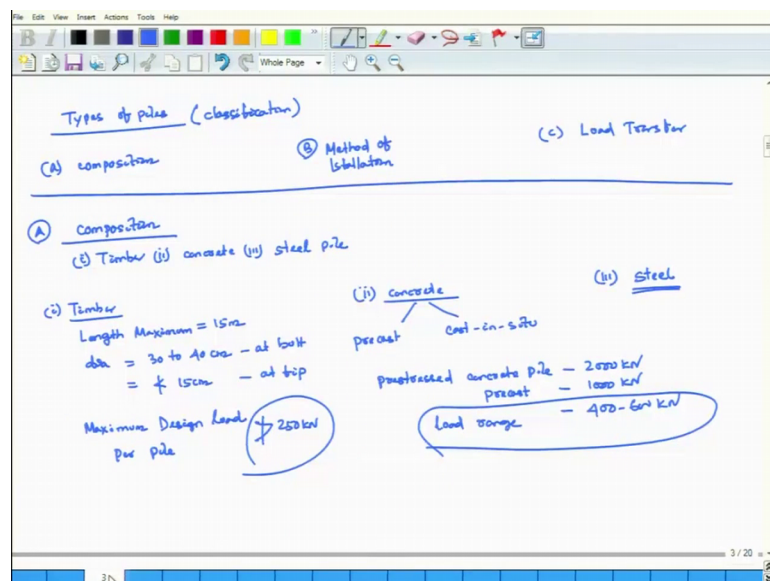 File Edit View Insert Actions Tools Help
B I
Whole Page
Types of piles (classification)
(A) composition
(B) Method of Istallation
(C) Load Transfer
(A) composition
(i) Timber (ii) concrete (iii) steel pile
(i) Timber
Length Maximum = 15m
dia = 30 to 40 cm - at butt
= ≮ 15cm - at tip
Maximum Design Load per pile ≯ 250 kN
(ii) concrete
precast cast-in-situ
prestressed concrete pile - 2000 kN
precast - 1000 kN
Load range - 400-600 kN
(iii) steel
3 / 20